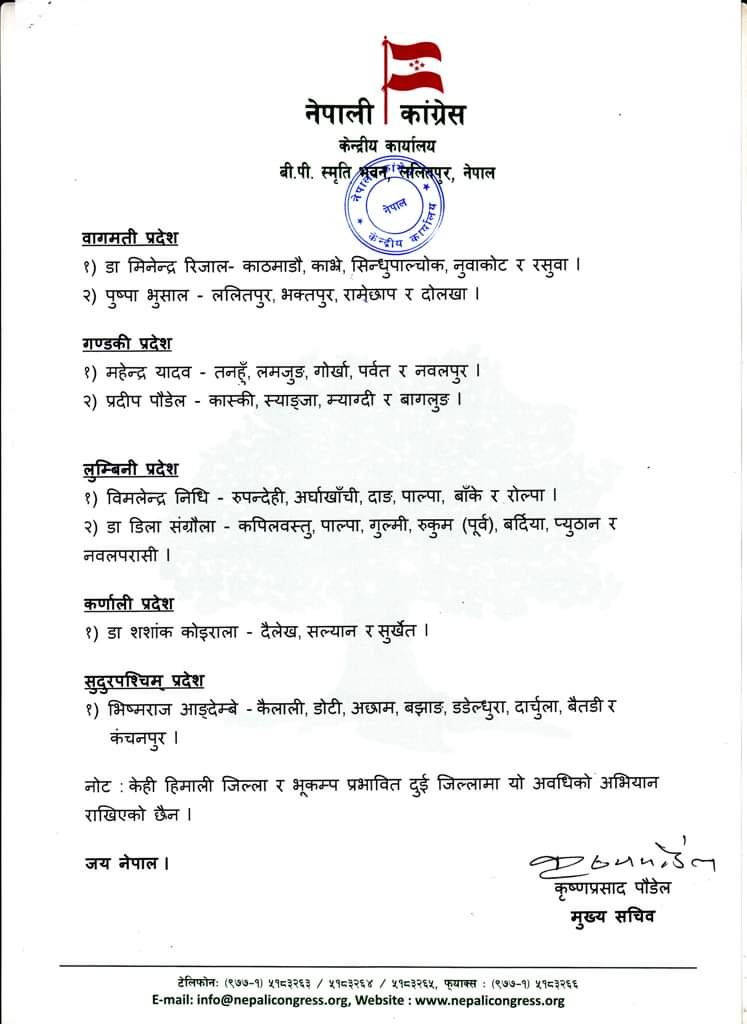 नेपाली कांग्रेस
केन्द्रीय कार्यालय
बी.पी. स्मृति भवन, ललितपुर, नेपाल
नेपाली कांग्रेस
नेपाल
केन्द्रीय कार्यालय
वागमती प्रदेश
१) डा मिनेन्द्र रिजाल- काठमाडौ, काभ्रे, सिन्धुपाल्चोक, नुवाकोट र रसुवा ।
२) पुष्पा भुसाल - ललितपुर, भक्तपुर, रामेछाप र दोलखा ।
गण्डकी प्रदेश
१) महेन्द्र यादव - तनहूँ, लमजुङ, गोर्खा, पर्वत र नवलपुर ।
२) प्रदीप पौडेल - कास्की, स्याङ्जा, म्याग्दी र बागलुङ ।
लुम्बिनी प्रदेश
१) विमलेन्द्र निधि - रुपन्देही, अर्घाखाँची, दाङ, पाल्पा, बाँके र रोल्पा ।
२) डा डिला संग्रौला - कपिलवस्तु, पाल्पा, गुल्मी, रुकुम (पूर्व), बर्दिया, प्युठान र
नवलपरासी ।
कर्णाली प्रदेश
१) डा शशांक कोइराला - दैलेख, सल्यान र सुर्खेत ।
सुदुरपश्चिम् प्रदेश
१) भिष्मराज आङ्देम्बे - कैलाली, डोटी, अछाम, बझाङ, डडेल्धुरा, दार्चुला, बैतडी र
कंचनपुर ।
नोट : केही हिमाली जिल्ला र भूकम्प प्रभावित दुई जिल्लामा यो अवधिको अभियान
राखिएको छैन ।
जय नेपाल ।
कृष्णप्रसाद पौडेल
मुख्य सचिव
टेलिफोनः (९७७-१) ५१८३२६३ / ५१८३२६४ / ५१८३२६५, फ्याक्स : (९७७-१) ५१८३२६६
E-mail: info@nepalicongress.org, Website : www.nepalicongress.org